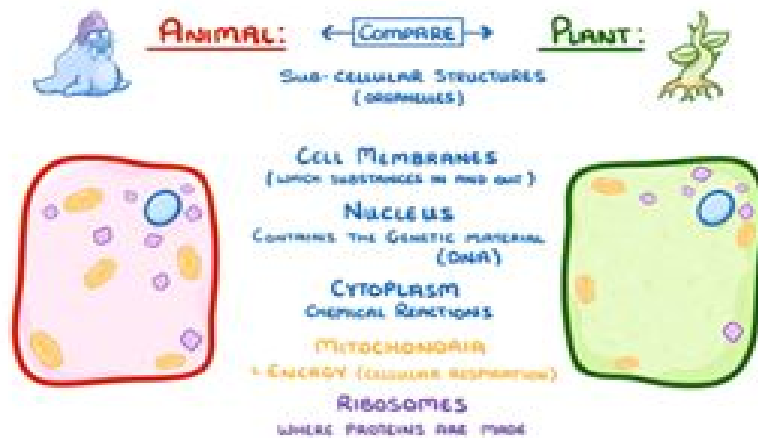 ANIMAL:
COMPARE
PLANT:
SUB-CELLULAR STRUCTURES
(ORGANELLES)
CELL MEMBRANES
(WHICH SUBSTANCES IN AND OUT)
NUCLEUS
CONTAINS THE GENETIC MATERIAL
(DNA)
CYTOPLASM
CHEMICAL REACTIONS
MITOCHONDRIA
ENERGY (CELLULAR RESPIRATION)
RIBOSOMES
WHERE PROTEINS ARE MADE